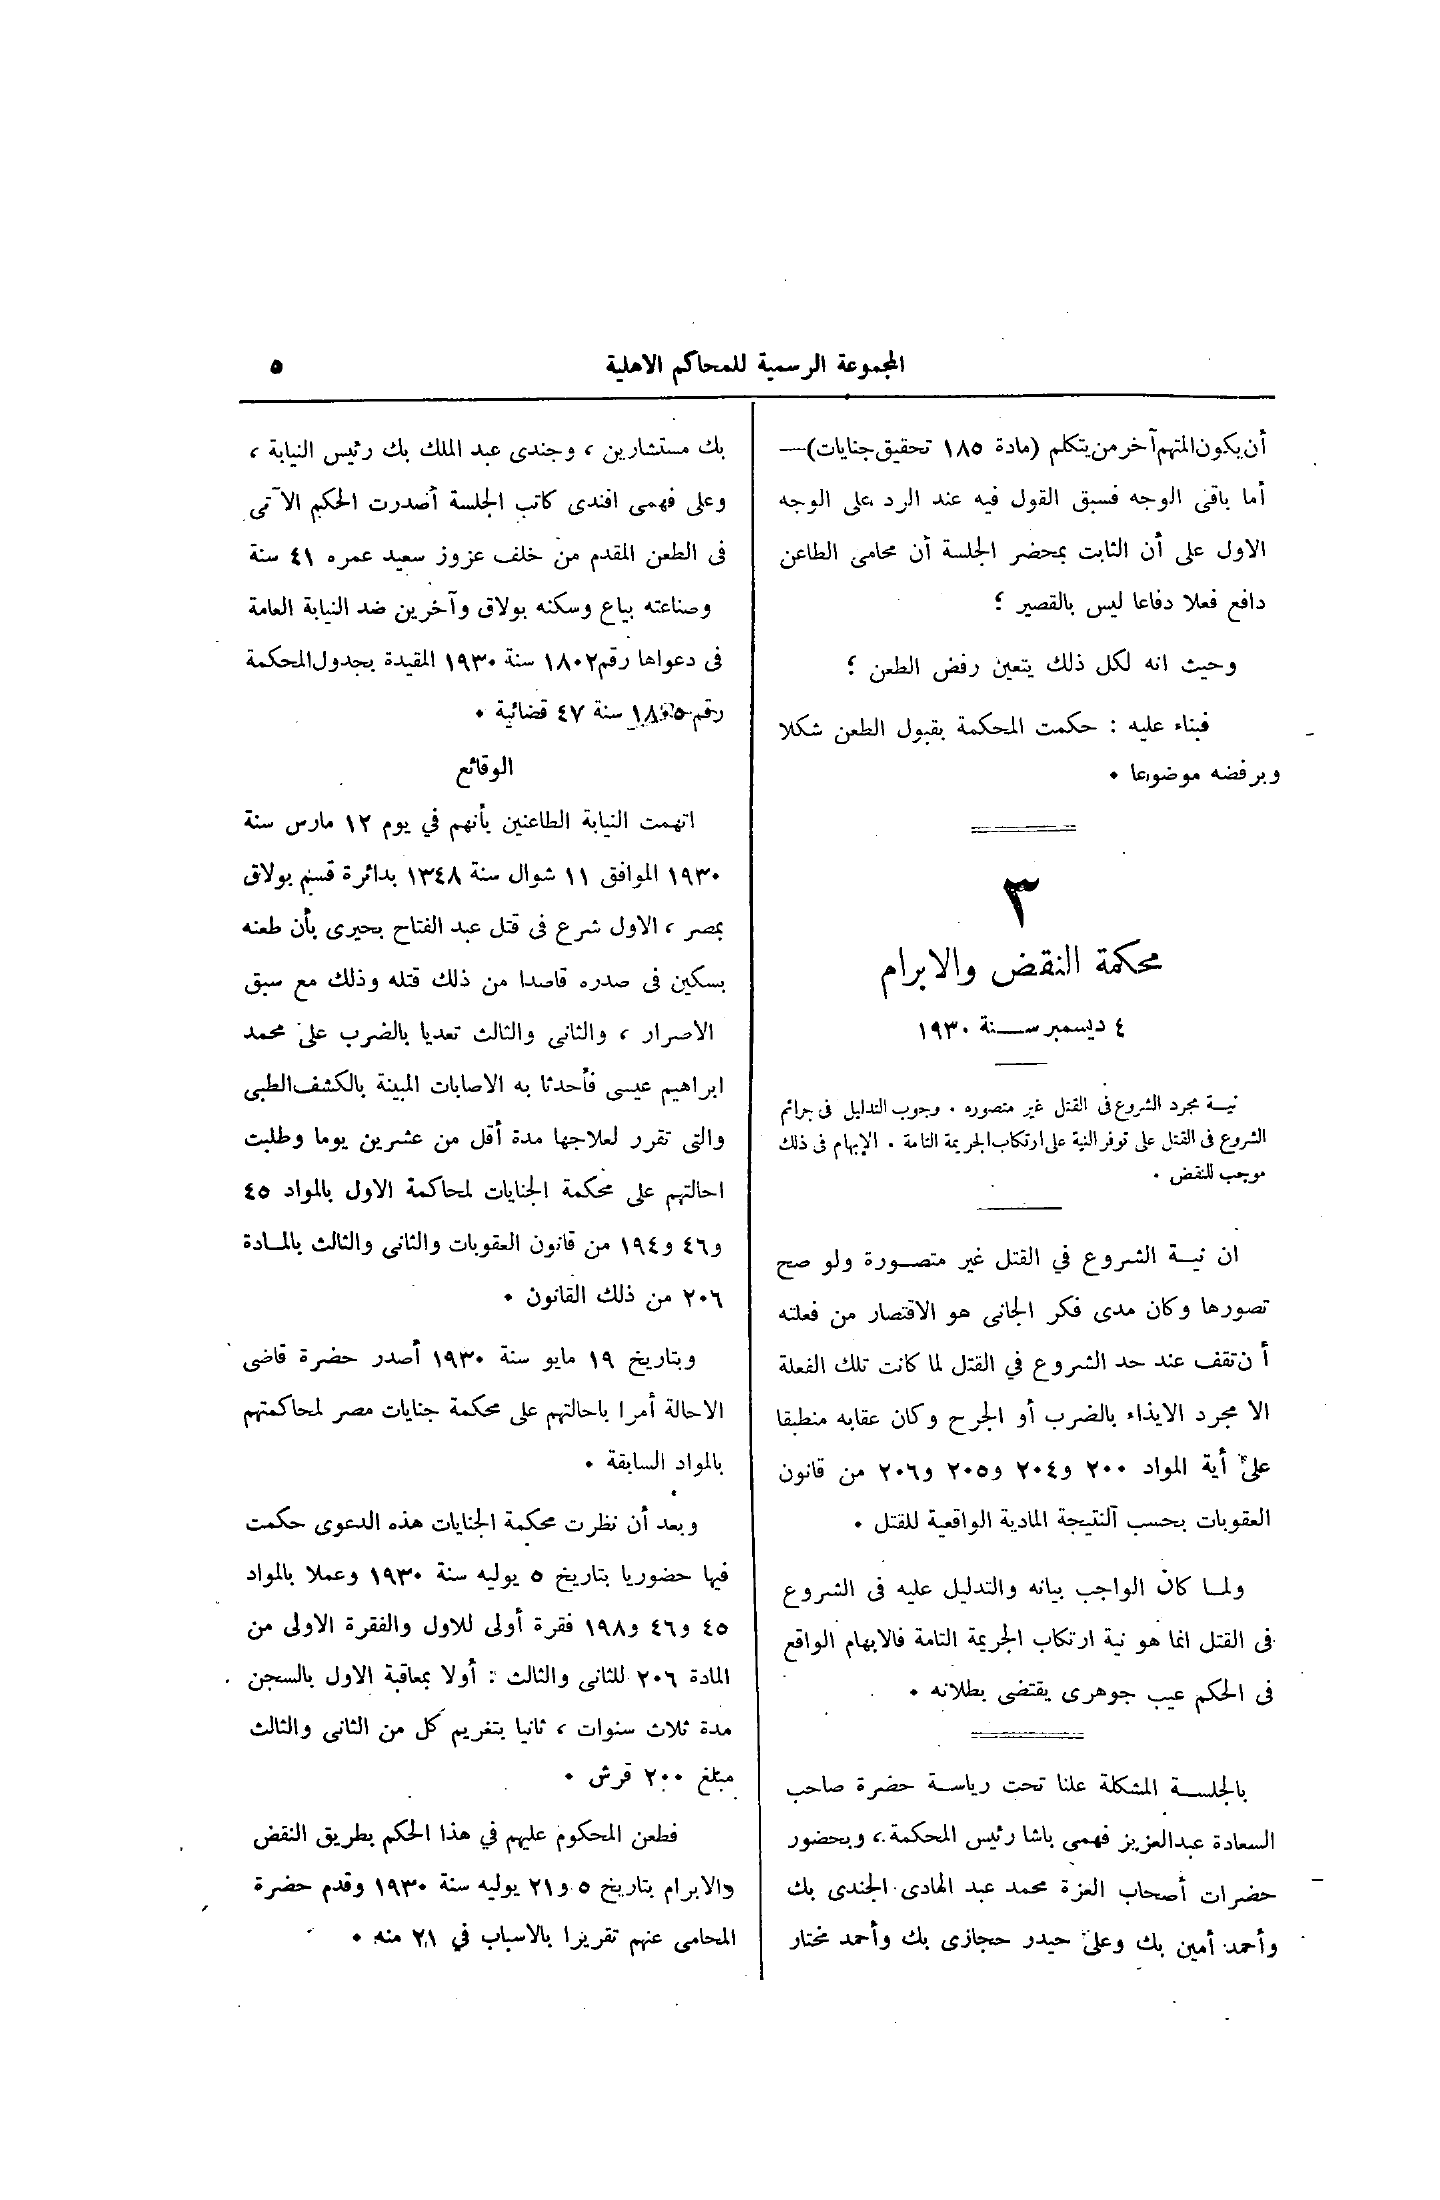 المجموعة الرسمية للمحاكم الاهلية
٥
أن يكون المتهم آخر من يتكلم (مادة ١٨٥ تحقيق جنايات) —
أما باقى الوجه فسبق القول فيه عند الرد على الوجه
الاول على أن الثابت بمحضر الجلسة أن محامى الطاعن
دافع فعلا دفاعا ليس بالقصير ؛
وحيث انه لكل ذلك يتعين رفض الطعن ؛
فبناء عليه : حكمت المحكمة بقبول الطعن شكلا
وبرفضه موضوعا .
٣
محكمة النقض والابرام
٤ ديسمبر سنة ١٩٣٠
نية مجرد الشروع فى القتل غير متصوره . وجوب التدليل فى جرائم
الشروع فى القتل على توفر النية على ارتكاب الجريمة التامة . الإبهام فى ذلك
موجب للنقض .
ان نية الشروع في القتل غير متصورة ولو صح
تصورها وكان مدى فكر الجانى هو الاقتصار من فعلته
أن تقف عند حد الشروع في القتل لما كانت تلك الفعلة
الا مجرد الايذاء بالضرب أو الجرح وكان عقابه منطبقا
على أية المواد ٢٠٠ و٢٠٤ و٢٠٥ و٢٠٦ من قانون
العقوبات بحسب النتيجة المادية الواقعية للقتل .
ولما كان الواجب بيانه والتدليل عليه فى الشروع
فى القتل انما هو نية ارتكاب الجريمة التامة فالابهام الواقع
فى الحكم عيب جوهرى يقتضى بطلانه .
بالجلسة المشكلة علنا تحت رياسة حضرة صاحب
السعادة عبد العزيز فهمى باشا رئيس المحكمة ، وبحضور
حضرات أصحاب العزة محمد عبد الهادى الجندى بك
وأحمد أمين بك وعلى حيدر حجازى بك وأحمد مختار
بك مستشارين ، وجندى عبد الملك بك رئيس النيابة ،
وعلى فهمى افندى كاتب الجلسة أصدرت الحكم الآتى
فى الطعن المقدم من خلف عزوز سعيد عمره ٤١ سنة
وصناعته بياع وسكنه بولاق وآخرين ضد النيابة العامة
فى دعواها رقم ١٨٠٢ سنة ١٩٣٠ المقيدة بجدول المحكمة
رقم سنة ٤٧ قضائية .
الوقائع
اتهمت النيابة الطاعنين بأنهم في يوم ١٢ مارس سنة
١٩٣٠ الموافق ١١ شوال سنة ١٣٤٨ بدائرة قسم بولاق
بمصر ، الاول شرع فى قتل عبد الفتاح بحيرى بأن طعنه
بسكين فى صدره قاصدا من ذلك قتله وذلك مع سبق
الاصرار ، والثانى والثالث تعديا بالضرب على محمد
ابراهيم عيسى فأحدثا به الاصابات المبينة بالكشف الطبى
والتى تقرر لعلاجها مدة أقل من عشرين يوما وطلبت
احالتهم على محكمة الجنايات لمحاكمة الاول بالمواد ٤٥
و٤٦ و١٩٤ من قانون العقوبات والثانى والثالث بالمادة
٢٠٦ من ذلك القانون .
وبتاريخ ١٩ مايو سنة ١٩٣٠ أصدر حضرة قاضى
الاحالة أمرا باحالتهم على محكمة جنايات مصر لمحاكمتهم
بالمواد السابقة .
وبعد أن نظرت محكمة الجنايات هذه الدعوى حكمت
فيها حضوريا بتاريخ ٥ يوليه سنة ١٩٣٠ وعملا بالمواد
٤٥ و٤٦ و١٩٨ فقرة أولى للاول والفقرة الاولى من
المادة ٢٠٦ للثانى والثالث : أولا بمعاقبة الاول بالسجن
مدة ثلاث سنوات ، ثانيا بتغريم كل من الثانى والثالث
مبلغ ٢٠٠ قرش .
فطعن المحكوم عليهم في هذا الحكم بطريق النقض
والابرام بتاريخ ٥ و٢١ يوليه سنة ١٩٣٠ وقدم حضرة
المحامى عنهم تقريرا بالاسباب في ٢١ منه .